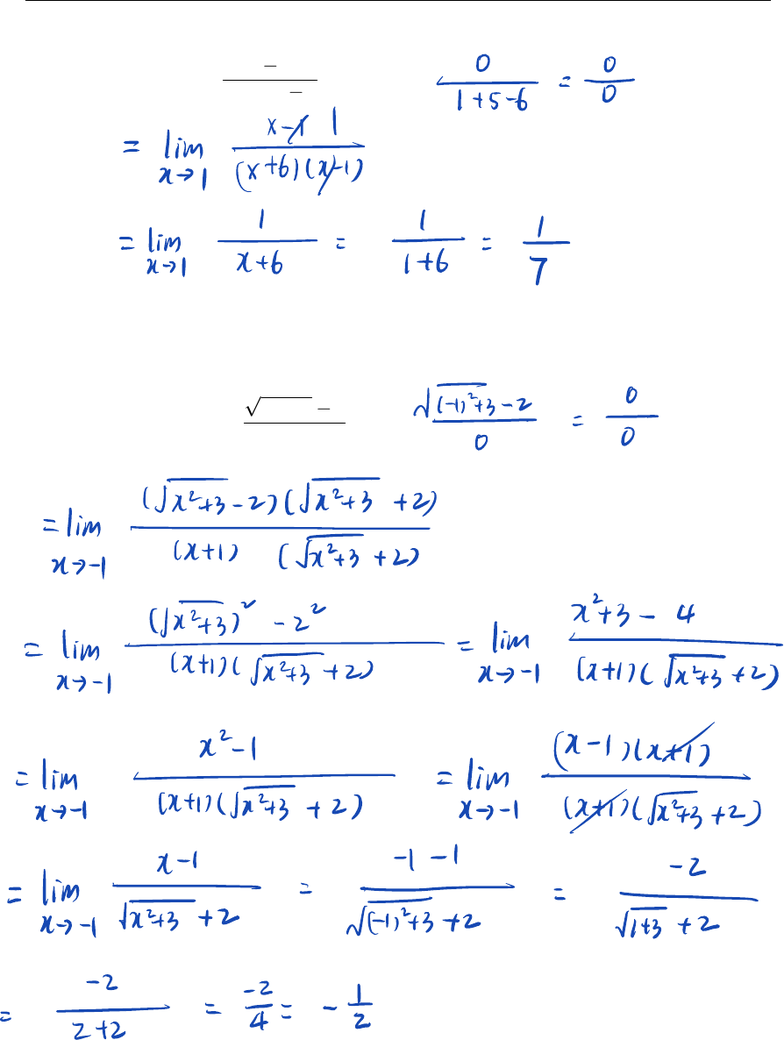 0/(1+5-6) = 0/0
= lim x→1 (x-1) 1/((x+6)(x-1))
= lim x→1 1/(x+6) = 1/(1+6) = 1/7
(√((-1)²+3) -2)/0 = 0/0
= lim x→-1 ((√(x²+3) -2)(√(x²+3) +2))/((x+1) (√(x²+3) +2))
= lim x→-1 ((√(x²+3))² - 2²)/((x+1)(√(x²+3) +2)) = lim x→-1 (x²+3 - 4)/((x+1)(√(x²+3) +2))
= lim x→-1 (x²-1)/((x+1)(√(x²+3) +2)) = lim x→-1 ((x-1)(x+1))/((x+1)(√(x²+3) +2))
= lim x→-1 (x-1)/(√(x²+3) +2) = (-1 -1)/(√((-1)²+3) +2) = -2/(√(1+3) +2)
= -2/(2+2) = -2/4 = -1/2